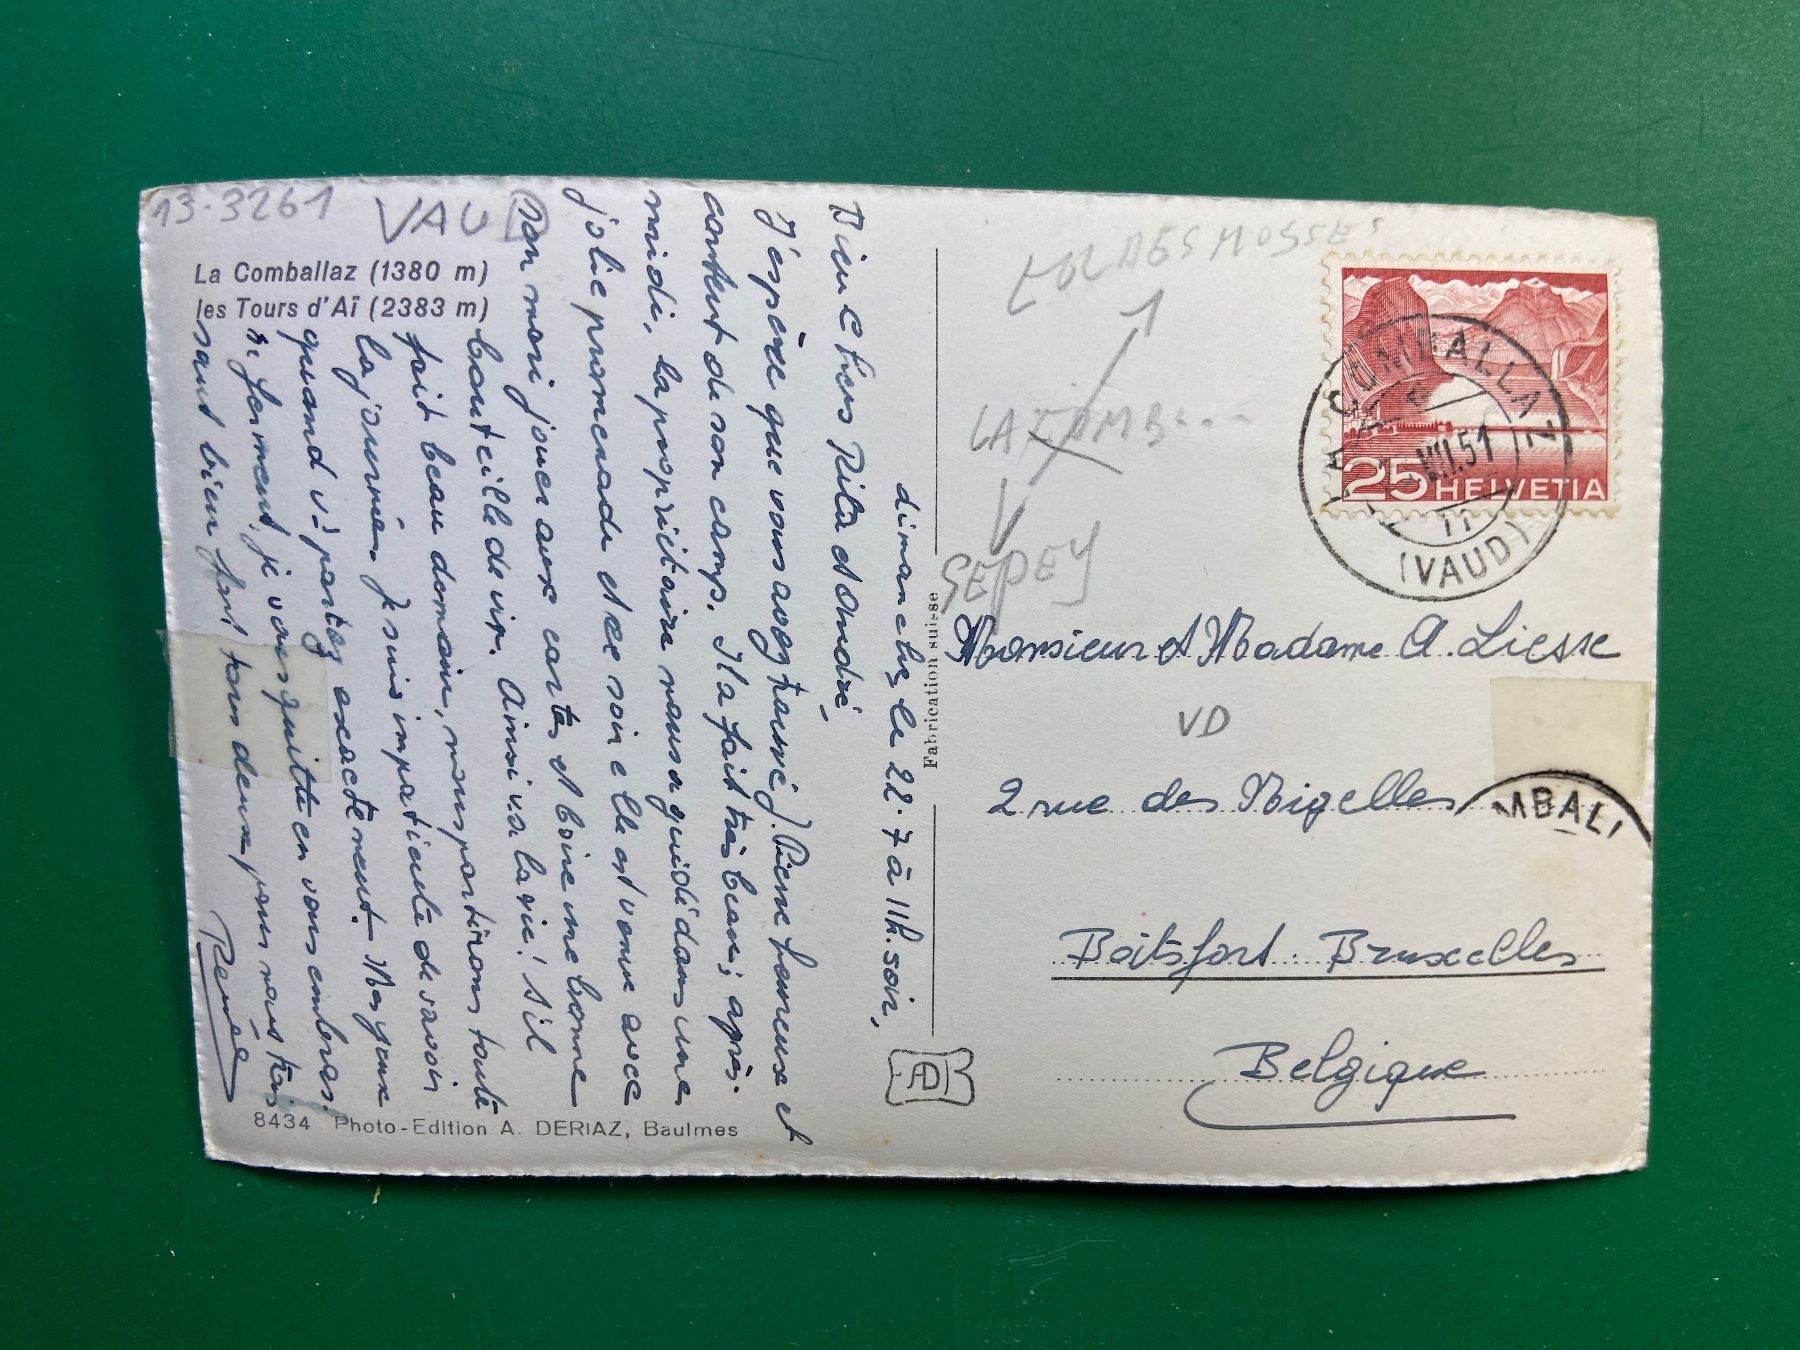 13-3261
VAUD
La Comballaz (1380 m)
les Tours d'Aï (2383 m)
dimanche, le 22.7 à 11h. soir,
Bien chers Rita et André,
J'espère que vous avez trouvé J. Pierre heureux et
content de son camp. Il a fait très beau; après-
midi, la propriétaire nous a guidé dans une
jolie promenade et ce soir elle est venue avec
son mari jouer aux cartes et boire une bonne
bouteille de vin. Ainsi va la vie! S'il
fait beau demain, nous partirons toute
la journée. Je suis impatiente de savoir
quand v/s partez exactement. Mes yeux
se ferment, je vous quitte en vous embras-
sant bien fort tous deux pour nous trois
Renée
8434 Photo-Edition A. DERIAZ, Baulmes
Fabrication suisse
AD
COL DES MOSSES
LA COMB...
SEPEY
LA COMBALLAZ
VII.51
11
(VAUD)
25 HELVETIA
Monsieur et Madame A. Liesse
VD
2 rue des Nigelles
MBALL
Boitsfort. Bruxelles
Belgique